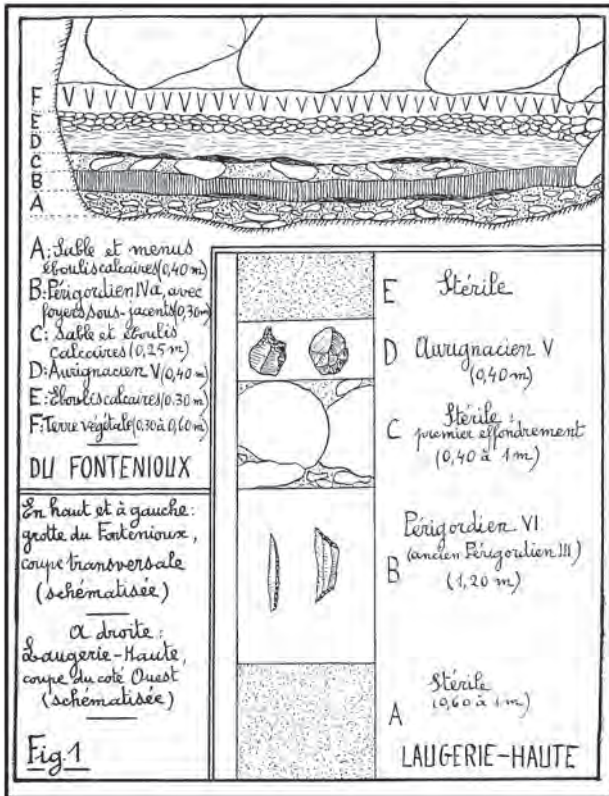 F
E
D
C
B
A
A: Sable et menus
éboulis calcaires (0,40 m)
B: Périgordien IVa, avec
foyers sous-jacents (0,30 m)
C: Sable et éboulis
calcaires (0,25 m)
D: Aurignacien V (0,40 m)
E: Eboulis calcaires (0.30 m)
F: Terre végétale (0,30 à 0,60 m)
DU FONTENIOUX
En haut et à gauche:
grotte du Fontenioux,
coupe transversale
(schématisée)
A droite:
Laugerie-Haute,
coupe du coté Ouest
(schématisée)
Fig. 1
E Stérile
D Aurignacien V
(0,40 m)
Stérile:
C premier effondrement
(0,40 à 1 m)
Périgordien VI
(ancien Périgordien III)
B (1,20 m)
Stérile
A (0,60 à 1 m)
LAUGERIE-HAUTE